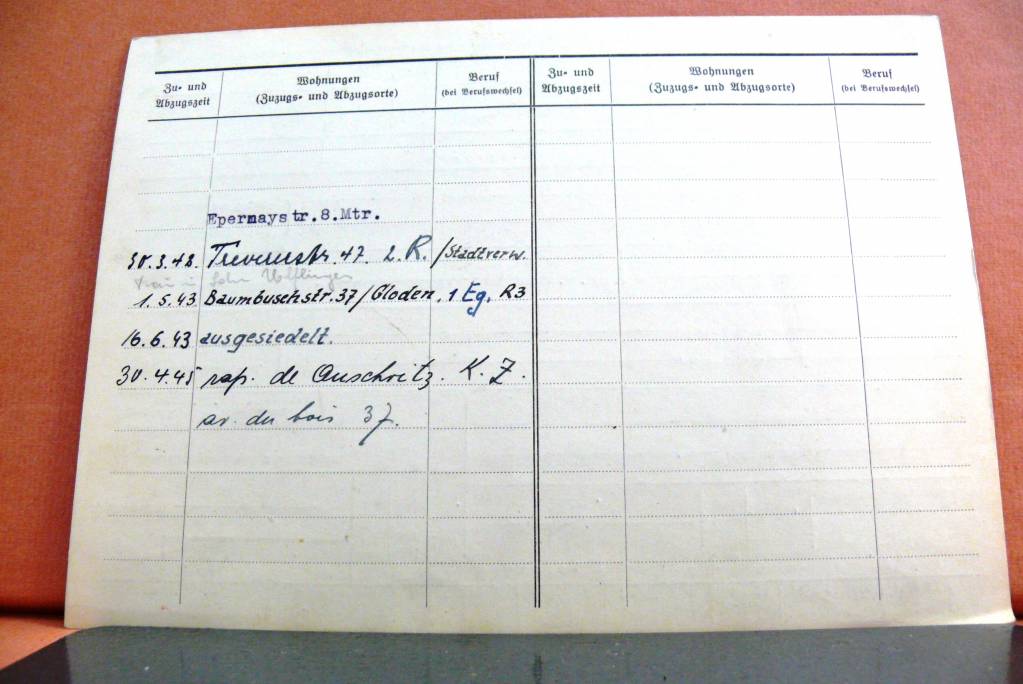 Zu- und Abzugszeit
Wohnungen
(Zuzugs- und Abzugsorte)
Beruf
(bei Berufswechsel)
Zu- und Abzugszeit
Wohnungen
(Zuzugs- und Abzugsorte)
Beruf
(bei Berufswechsel)
Epernaystr.8.Mtr.
30.3.42. Treverustr. 47. 2. R. /Stadtverw.
1.5.43 Baumbuschstr.37/Gloden, 1 Eg. R3
16.6.43 ausgesiedelt.
30.4.45 rap. de Auschwitz. K. Z.
av. du bois 37.